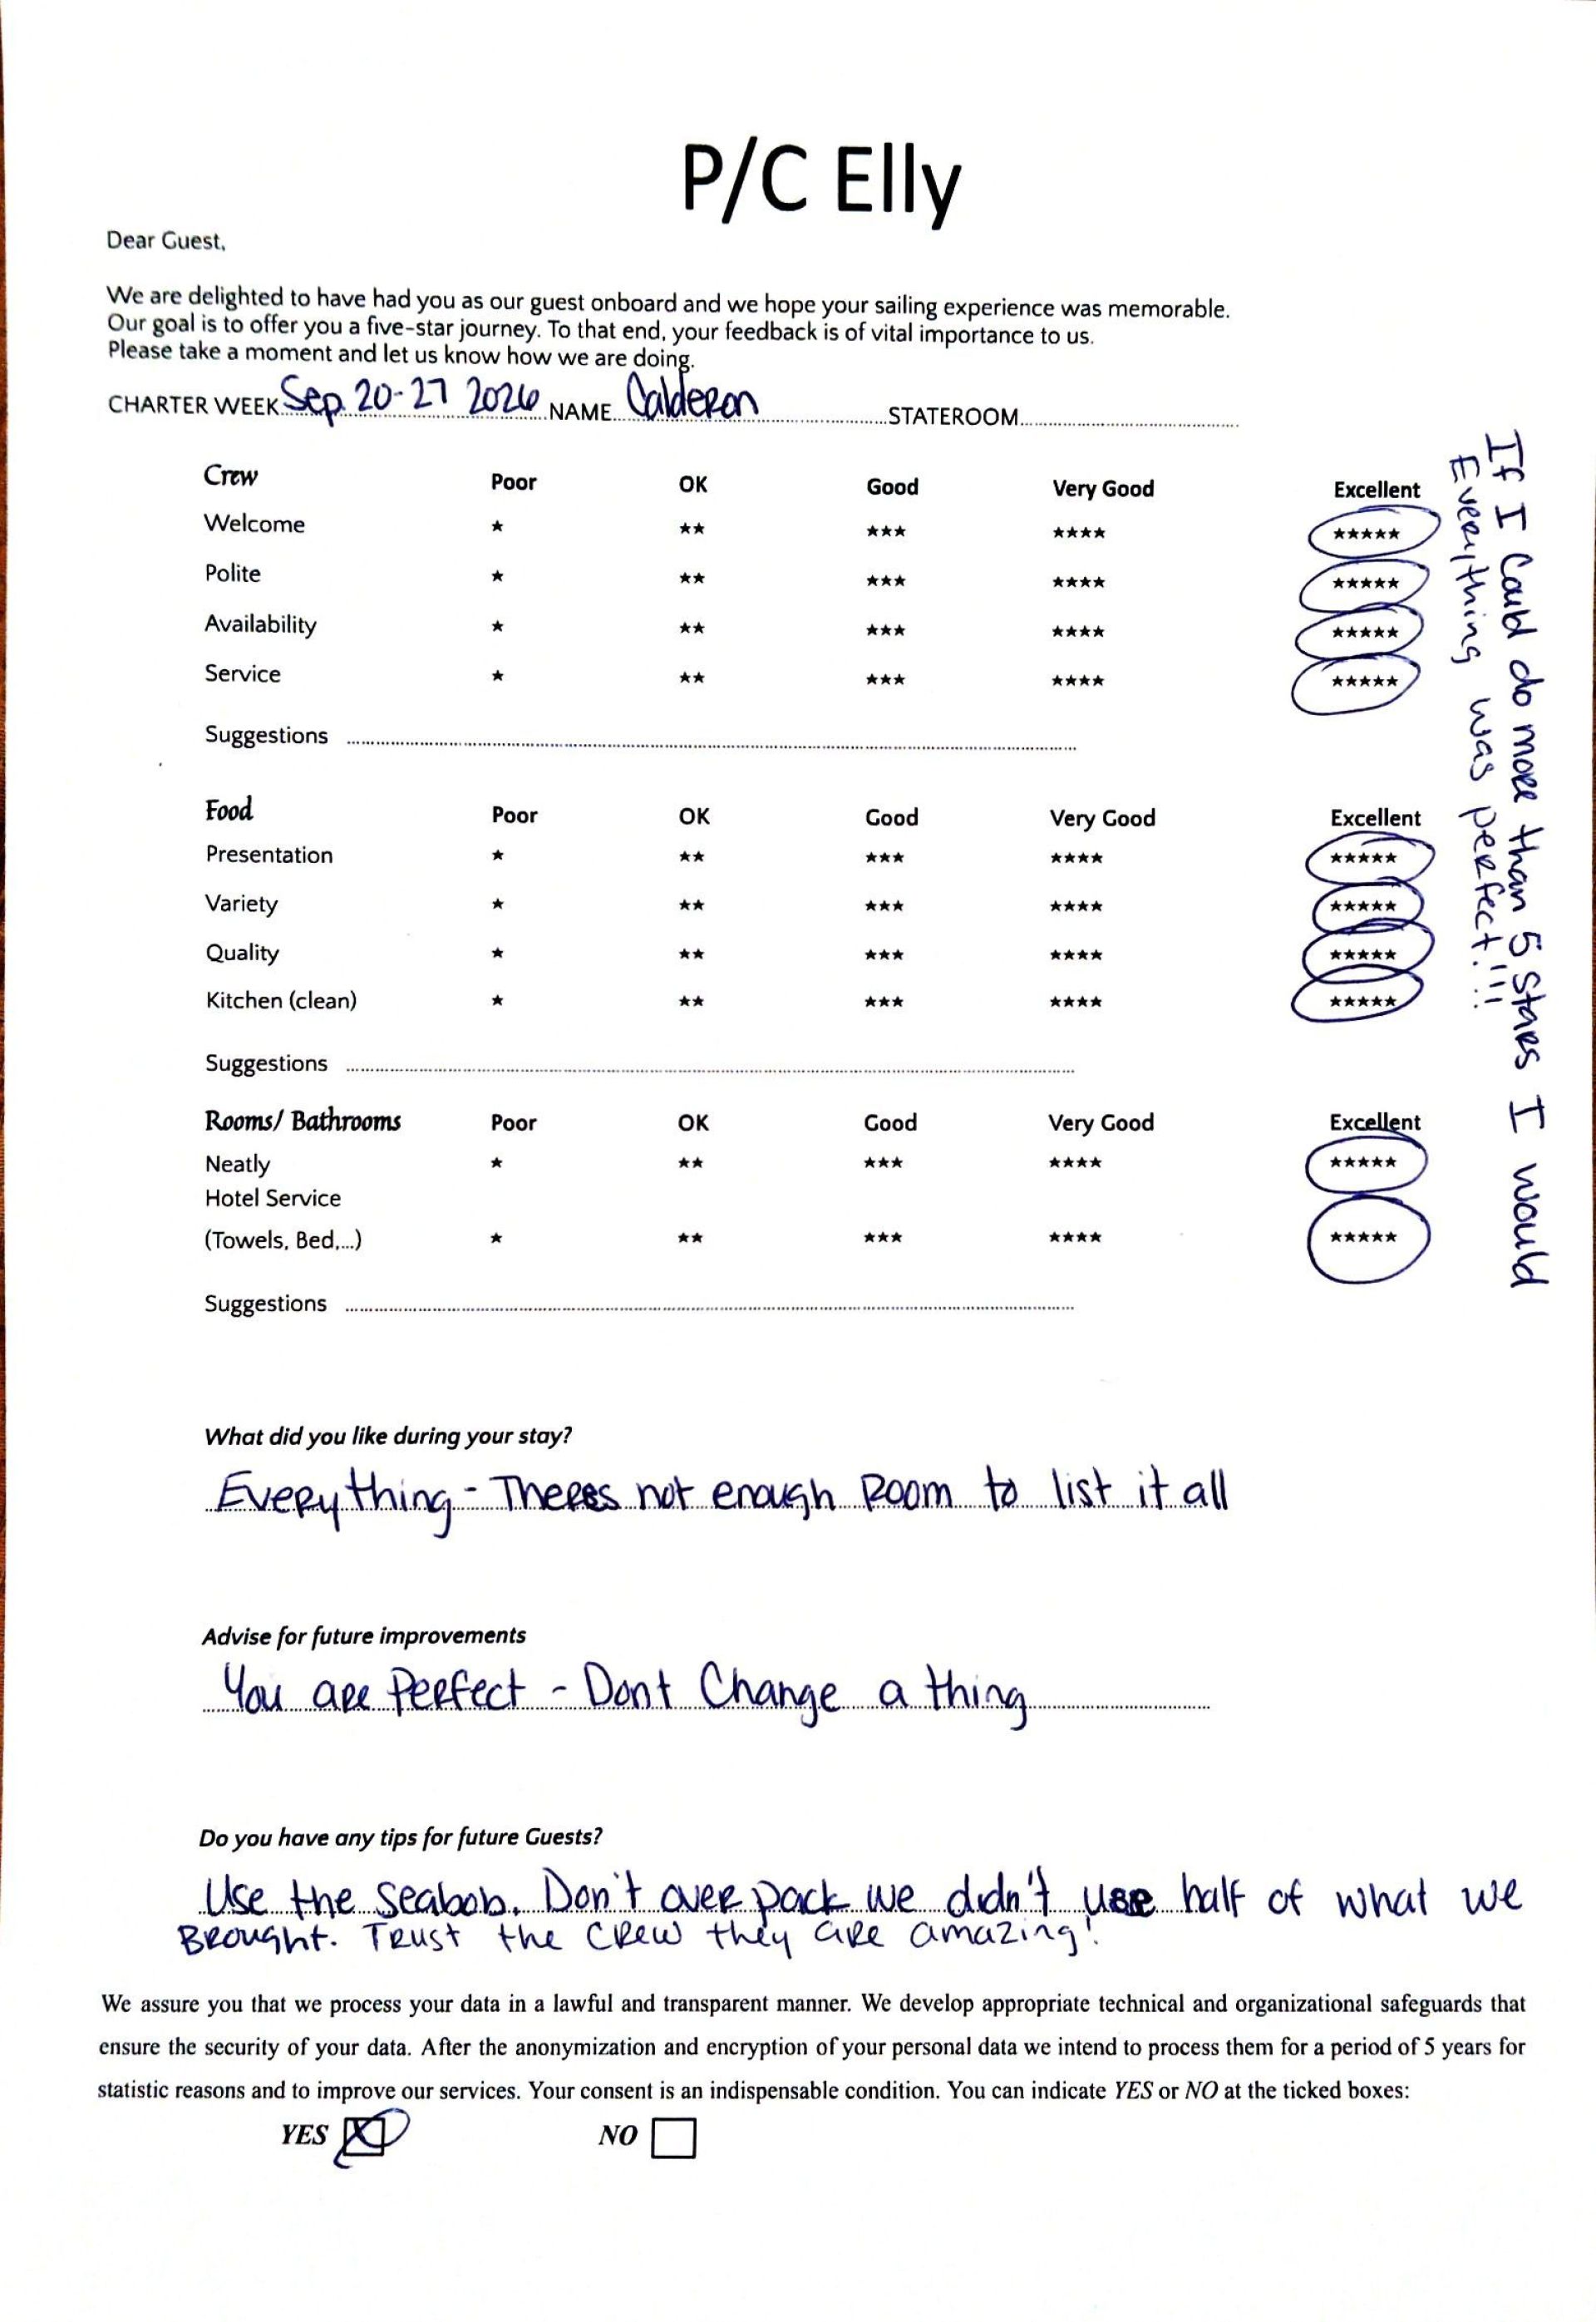 P/C Elly
Dear Guest,
We are delighted to have had you as our guest onboard and we hope your sailing experience was memorable.
Our goal is to offer you a five-star journey. To that end, your feedback is of vital importance to us.
Please take a moment and let us know how we are doing.
CHARTER WEEK Sep. 20-27 2026 NAME Calderon STATEROOM
Crew Poor OK Good Very Good Excellent
Welcome ★ ★★ ★★★ ★★★★ ★★★★★
Polite ★ ★★ ★★★ ★★★★ ★★★★★
Availability ★ ★★ ★★★ ★★★★ ★★★★★
Service ★ ★★ ★★★ ★★★★ ★★★★★
Suggestions
Food Poor OK Good Very Good Excellent
Presentation ★ ★★ ★★★ ★★★★ ★★★★★
Variety ★ ★★ ★★★ ★★★★ ★★★★★
Quality ★ ★★ ★★★ ★★★★ ★★★★★
Kitchen (clean) ★ ★★ ★★★ ★★★★ ★★★★★
Suggestions
Rooms/ Bathrooms Poor OK Good Very Good Excellent
Neatly ★ ★★ ★★★ ★★★★ ★★★★★
Hotel Service
(Towels, Bed,...) ★ ★★ ★★★ ★★★★ ★★★★★
Suggestions
If I Could do more than 5 Stars I would
Everything was perfect!!!!
What did you like during your stay?
Everything - Theres not enough Room to list it all
Advise for future improvements
You are Perfect - Dont Change a thing
Do you have any tips for future Guests?
Use the Seabob. Don't over pack we didn't use half of what we
Brought. Trust the Crew they are amazing!
We assure you that we process your data in a lawful and transparent manner. We develop appropriate technical and organizational safeguards that
ensure the security of your data. After the anonymization and encryption of your personal data we intend to process them for a period of 5 years for
statistic reasons and to improve our services. Your consent is an indispensable condition. You can indicate YES or NO at the ticked boxes:
YES NO